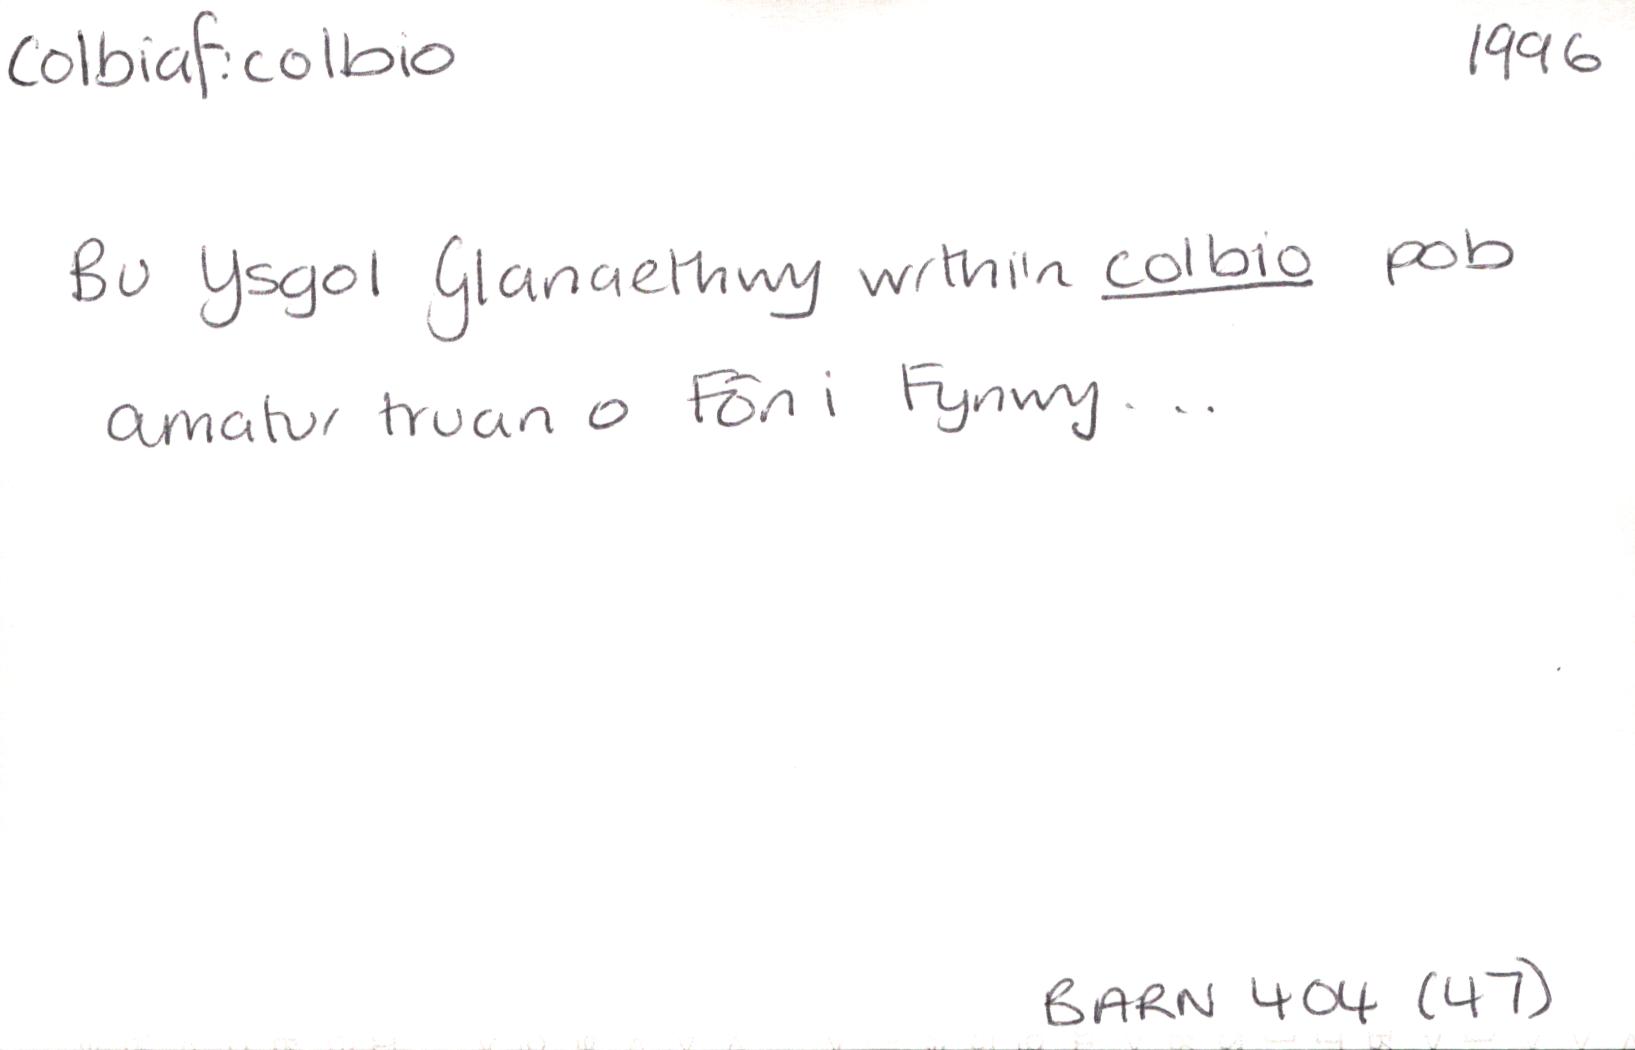 Colbiaf: colbio 1996
Bu Ysgol Glanaethwy wrthi'n colbio pob
amatur truan o Fôn i Fynwy...
BARN 404 (47)